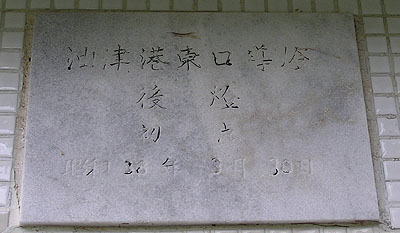 油津港東口導燈
後燈
初点
昭和28年3月30日